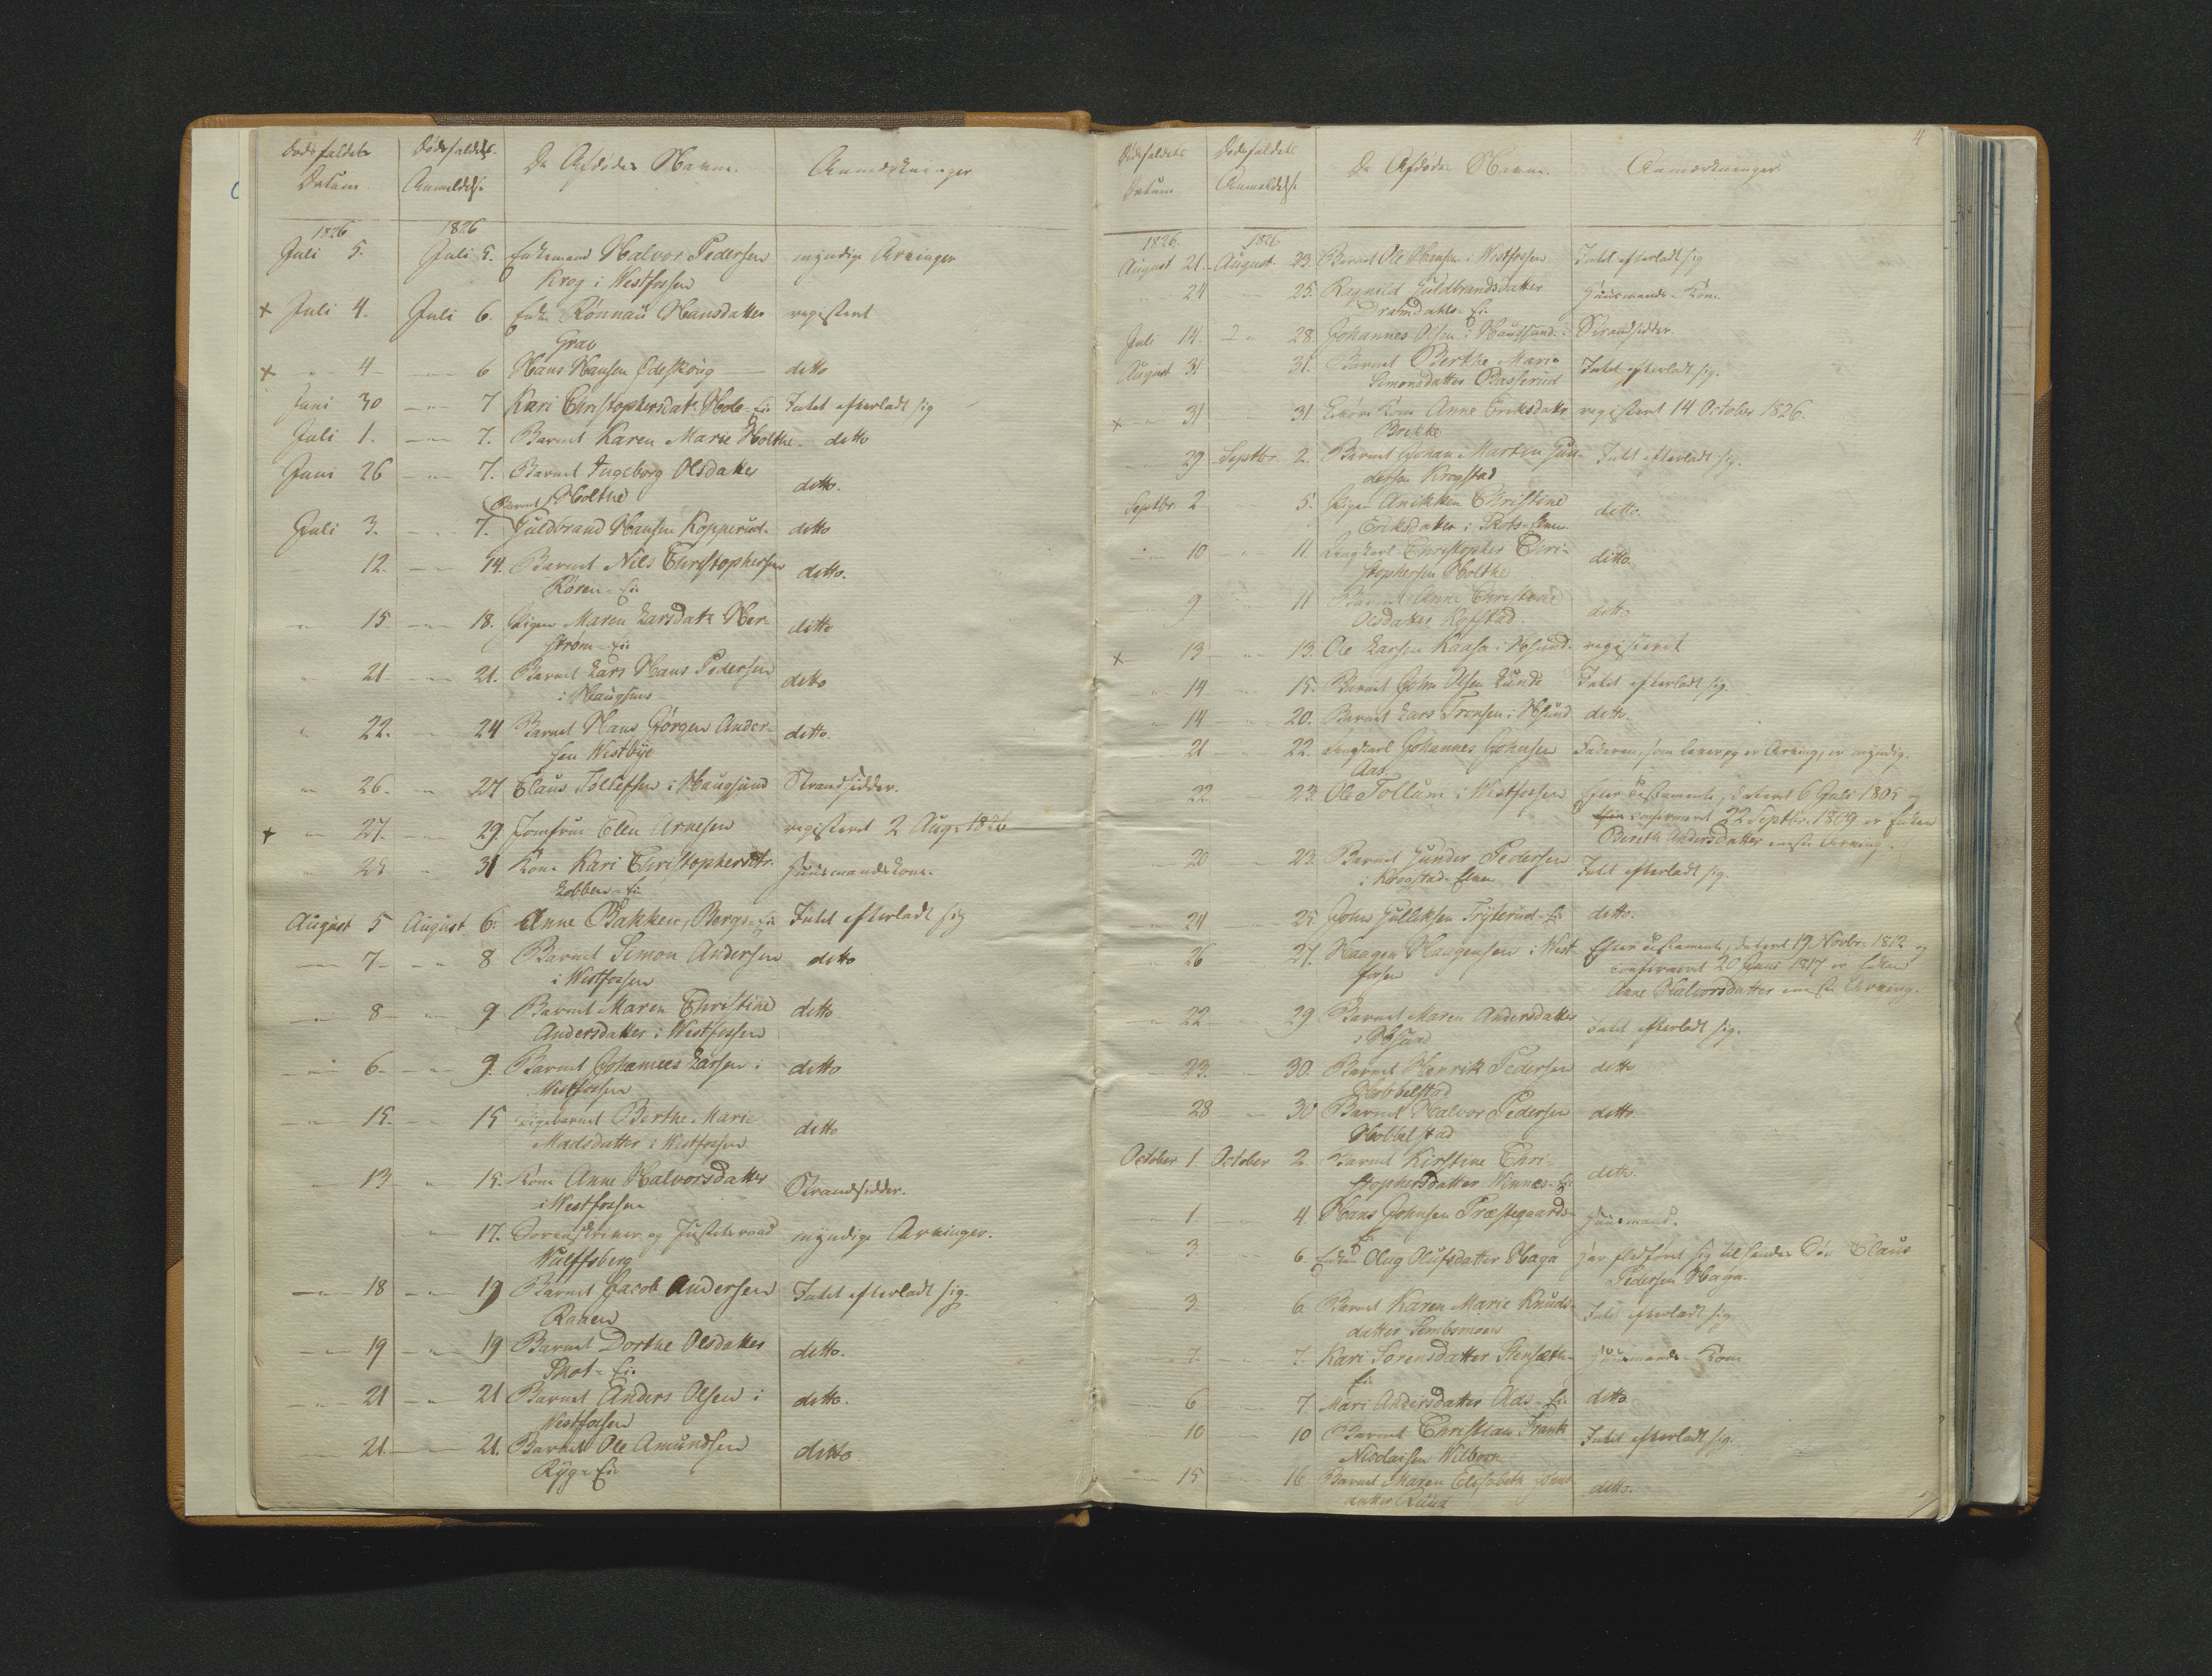 Dødsfaldets Dødsfaldets De Afdødes Navne. Anmærkninger
Datum Anmeldelse
1826 1826
Juli 5. Juli 5. Enkemand Halvor Pedersen myndige Arvinger
Krog i Westfossen
+ Juli 4. Juli 6. Enke Rönnau Hansdatter registeret
Grav
+ " 4 " 6 Hans Hansen ditto
Juni 30 " 7 Kari Christophersdatr Hole-Eie Intet efterladt sig
Juli 1. " 7. Barnet Karen Marie Holthe ditto
Juni 26 " 7. Barnet Ingeborg Olsdatter
Holthe ditto.
Barnet
Juli 3. " 7. Guldbrand Hansen Kopperud ditto
12. " 14. Barnet Niels Christophersen ditto.
Røren-Eie
" 15. " 18. Pigen Maren Larsdatr Her- ditto
strøm-Eie
" 21 " 21. Barnet Lars Hans Pedersen ditto
i Haugsund
" 22. " 24 Barnet Hans Jörgen Ander- ditto.
sen Westbye
" 26. " 27 Claus Tollefsen i Haugsund Strandsidder.
+ " 27. " 29. Jomfrue Elen Arnesen registeret 2 Aug. 1826
" 28 " 31 Kone Kari Christophersdtr. Huusmandskone.
Lobben-Eie
August 5 August 6. Anne Bakken, Bergs-Eie Intet efterladt sig
" 7 " 8 Barnet Simon Andersen ditto
i Westfossen
" 8 " 9 Barnet Maren Christine ditto
Andersdatter i Westfossen
" 6 " 9. Barnet Johannes Larsen i ditto
Westfossen
" 15. " 15 Pigebarnet Berthe Marie ditto
Madsdatter i Westfossen
" 13 " 15. Kone Anne Halvorsdatter Strandsidder.
i Westfossen
" 17. Sorenskriver og Justitsraad myndige Arvinger.
Wulffsberg
" 18 " 19 Barnet Jacob Andersen Intet efterladt sig.
Raaen
" 19 " 19 Barnet Dorthe Olsdatter ditto.
Skot-Eie
" 21 " 21 Barnet Anders Olsen i ditto.
Westfossen
" 21 " 21. Barnet Ole Amundsen ditto.
Ryg-Eie
4
Dødsfaldets Dødsfaldets De Afdødes Navne. Anmærkninger.
Datum Anmeldelse
1826. 1826
August 21. August 23. Barnet Ole Hansen i Westfossen Intet efterladt sig
" 24 " 25. Ragnild Guldbrandsdatter Huusmands-Kone.
Dramdahls-Eie
Juli 14. " 28. Johannes Olsen i Haugsund. Strandsidder.
August 31 31. Barnet Berthe Marie Intet efterladt sig.
Simonsdatter Basserud
+ " 31 31 Kone Anne Eriksdatter registeret 14 October 1826.
Brekke
" 29 Septbr. 2. Barnet Johan Martin Gun- Intet efterladt sig.
dersen Krogstad
Septbr. 2 " 5. Pigen Anikken Christine ditto.
Eriksdatter i Skots-Elven
" 10 " 11. Ungkarl Christopher Chri- ditto.
stophersen Holthe
9 " 11 Barnet Anne Christine ditto
Olsdatter Hofstad
+ 13 " 13. Ole Larsen Kaasa i Høsund. registeret
" 14 " 15. Barnet John Olsen Lunde Intet efterladt sig.
" 14 " 20. Barnet Lars i Høsund ditto.
" 21 " 22. Ungkarl Johannes Johnsen Faderen, som Lever og er Arving, er myndig.
Aas.
22 " 23. Ole Tollum i Westfossen Efter Testamente, dateret 6 Juli 1805 og
confirmeret 22 Septbr. 1809 er Enken
Bereth Andersdatter eneste Arving.
20 " 23. Barnet Gunder Pedersen Intet efterladt sig.
i Krogstad-Elven
24 " 25. John Gulliksen Tryterud-Eie ditto.
26 " 27. Haagen Haagensen i West- Efter Testamente, dateret 19 Novbr. 1812 og
fossen confirmeret 20 Juni 1817 er Enken
Anne Halvorsdatter eneste Arving.
" 22 " 29 Barnet Maren Andersdatter Intet efterladt sig.
i Høsund
" 23. " 30. Barnet Henrik Pedersen ditto
Hobbelstad
28 " 30 Barnet Halvor Pedersen ditto.
Hobbelstad
October 1 October 2 Barnet Kirstine Chri- ditto.
stophersdatter Winnes-Eie
" 1 " 4. Hans Johnsen Præstegaards- Huusmand.
Eie
3 " 6. Enken Olug Olufsdatter Haga har fledført sig til hendes Søn Claus
Pedersen Haga.
3 6 Barnet Karen Marie Knuds- Intet efterladt sig
datter Sembsmoen
" 7. " 7. Kari Sørensdatter Stenseth- Huusmands-Kone
Eie
" 6 " 7. Mari Andersdatter Aas-Eie ditto
" 10 " 10 Barnet Christian Frank Intet efterladt sig.
Nicolaisen
" 15 " 16 Barnet Maren Elisabeth
datter Ruud ditto.